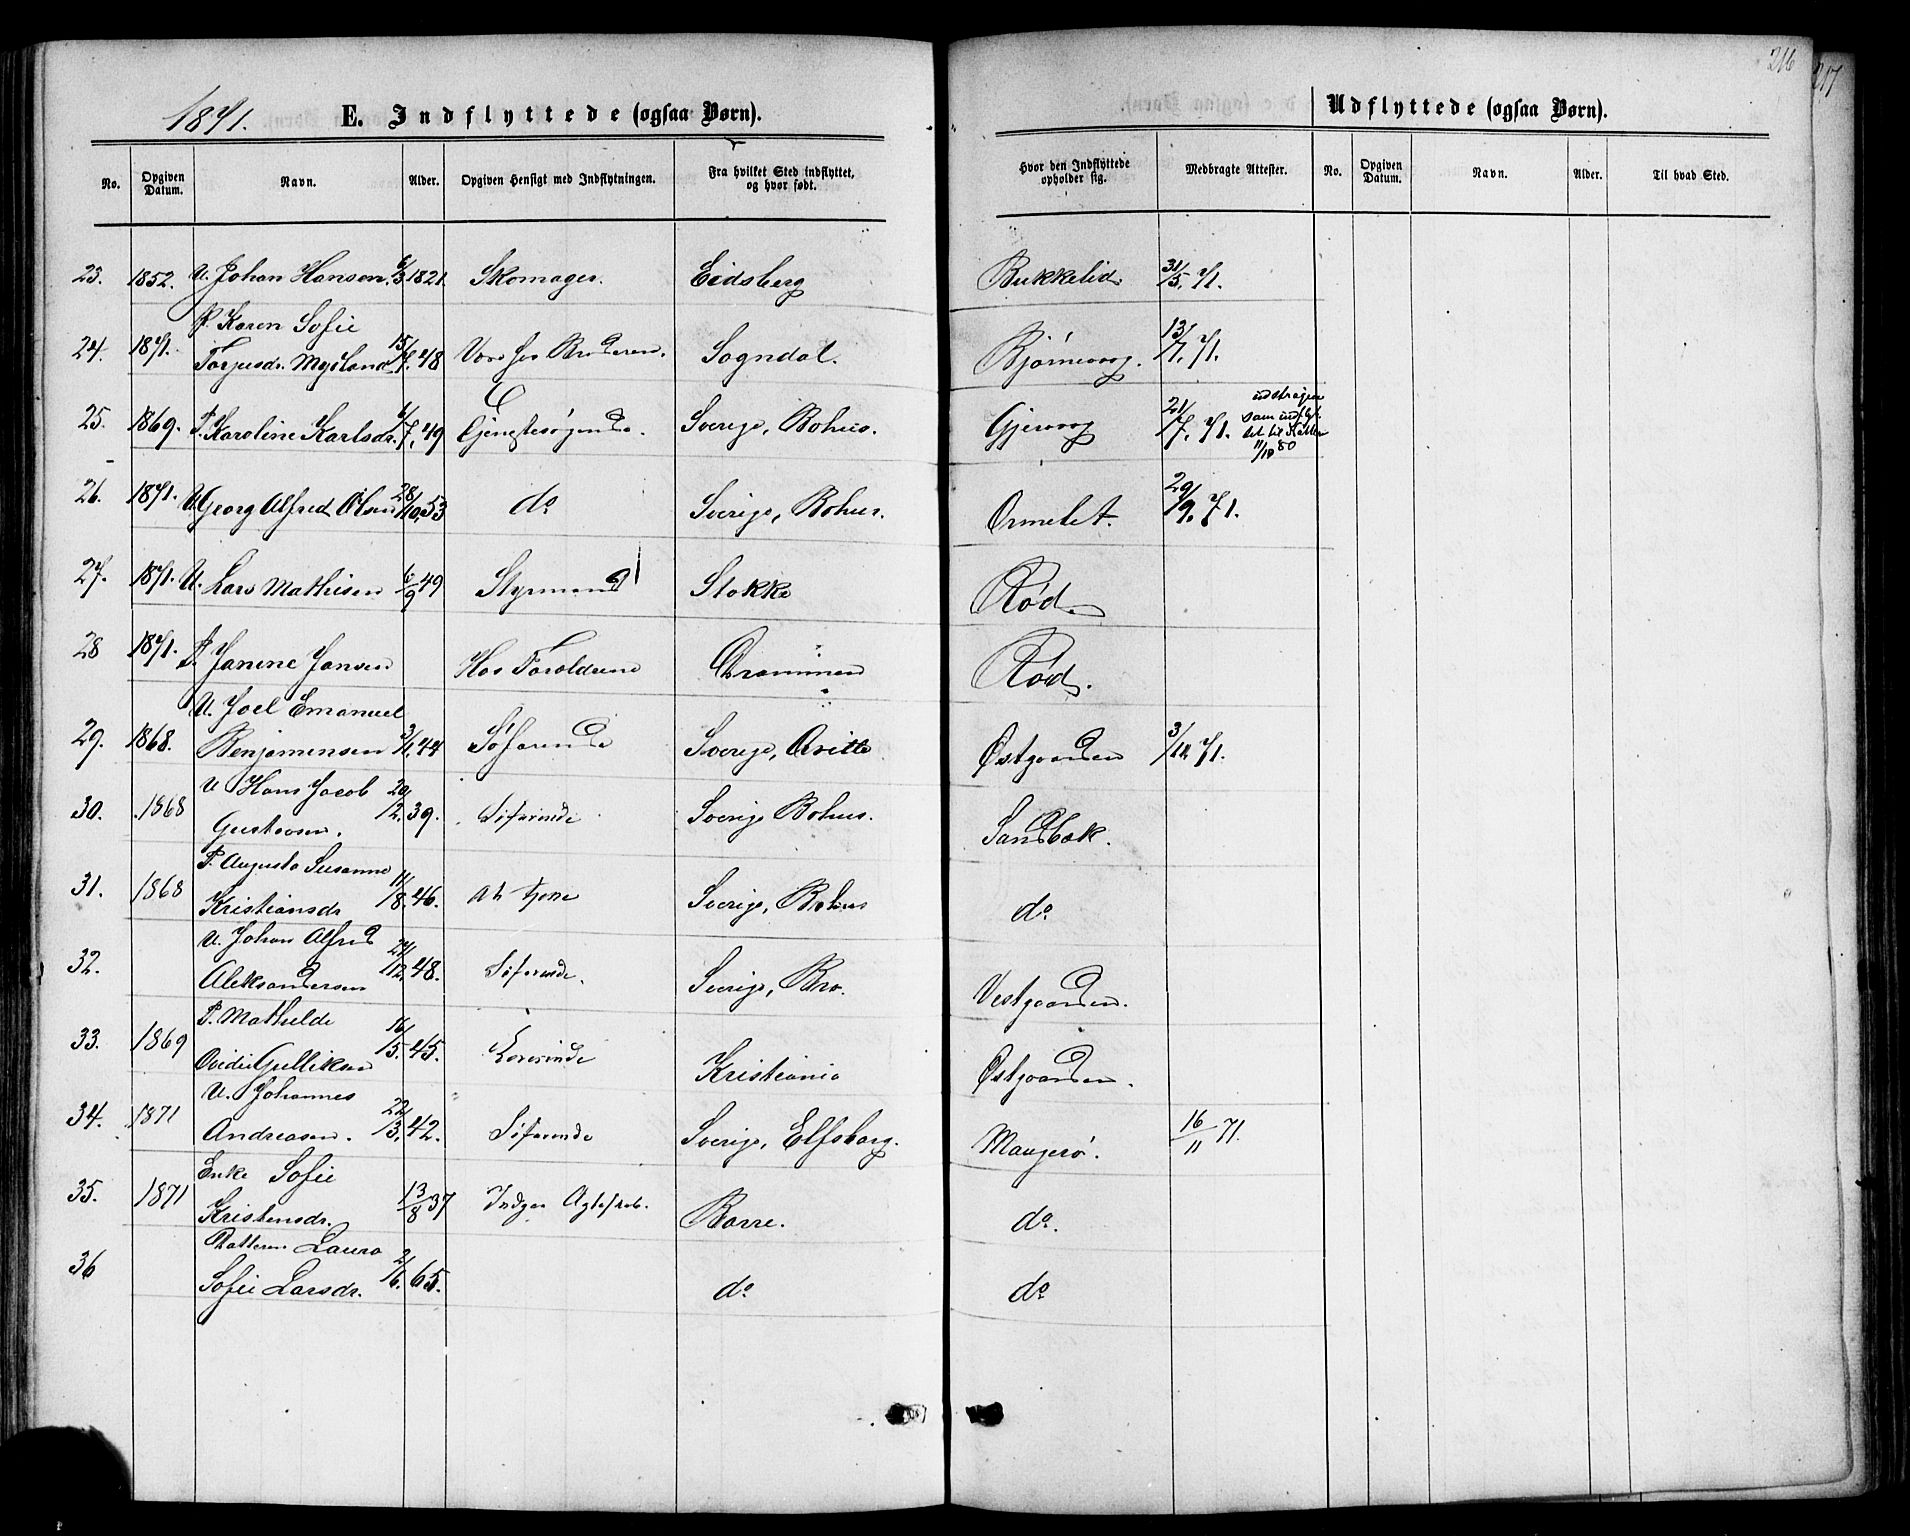 216
217
1871. E. Indflyttede (ogsaa Børn).
Udflyttede (ogsaa Børn).
No. Opgiven Datum. Navn. Alder. Opgiven Hensigt med Indflytningen. Fra hvilket Sted indflyttet, og hvor født. Hvor den Indflyttede opholder sig. Medbragte Attester. No. Opgiven Datum. Navn. Alder. Til hvad Sted.
23. 1852. U. Johan Hansen. 6/3 1821. Skomager. Eidsberg Bukkelid 31/5. 71.
P. Karen Sofie
24. 1871. Torjusdr. Mydland 15/7. 48 Være hos Broderen. Sogndal. Bjørnevaag. 13/7. 71.
25. 1869. P. Karoline Karlsdr. 6/7. 49 Tjenestesøgende. Sverige, Bohus. Gjervaag 21/7. 71. udstrøgen
som udflyt-
tet til Sætter
11/10 80
26. 1871. U. Georg Alfred Olsen 28/10. 53 do Sverige, Bohus. Ormelet. 29/9. 71.
27. 1871. U. Lars Mathisen 6/9 49 Styrmand Stokke Rød.
28 1871. P. Janine Jansen Hos Forældrene Drammen Rød.
U. Joel Emanuel
29. 1868. Benjamensen 3/1. 44 Søfarende Sverige, Qville Østgaarden 3/10 71.
U Hans Jacob
30. 1868 Gustavsen. 20/12. 39. Søfarende Sverige Bohus. Sandbæk.
P. Augusta Susanne
31. 1868 Kristiansdr 11/8. 46. At tjene Sverige, Bohus do
U. Johan Alfred
32. Aleksandersen 24/12. 48. Søfarende. Sverige, Bro. Vestgaarden.
P. Mathilde
33. 1869 Ovidie Gulliksen 16/5. 45. Lærerinde Kristiania Østgaarden.
U. Johannes
34. 1871 Andreasen. 22/3. 42. Søfarende Sverige, Elfsborg. Maugerø. 16/11 71.
Enke Sofie
35. 1871 Kristensdr. 13/8 37 Indgaa Ægteskab. Borre. do.
Datteren Laura
36 Sofie Larsdr. 2/6. 65. do do